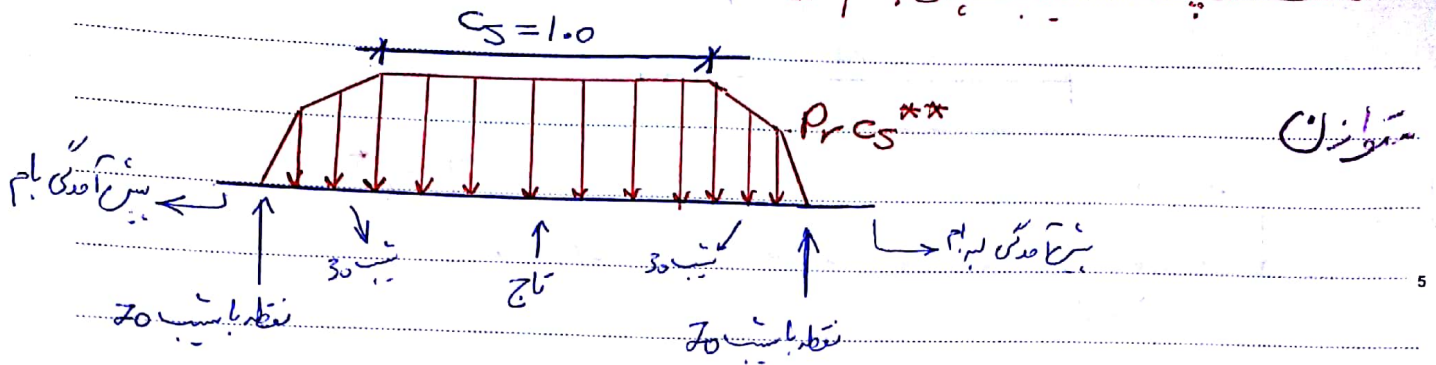 Cs = 1.0
Pr Cs**
متوازن
پیش آمدگی بام
پیش آمدگی لبه بام
شیب 30
تاج
شیب 30
نقطه با شیب 70
نقطه با شیب 70
5